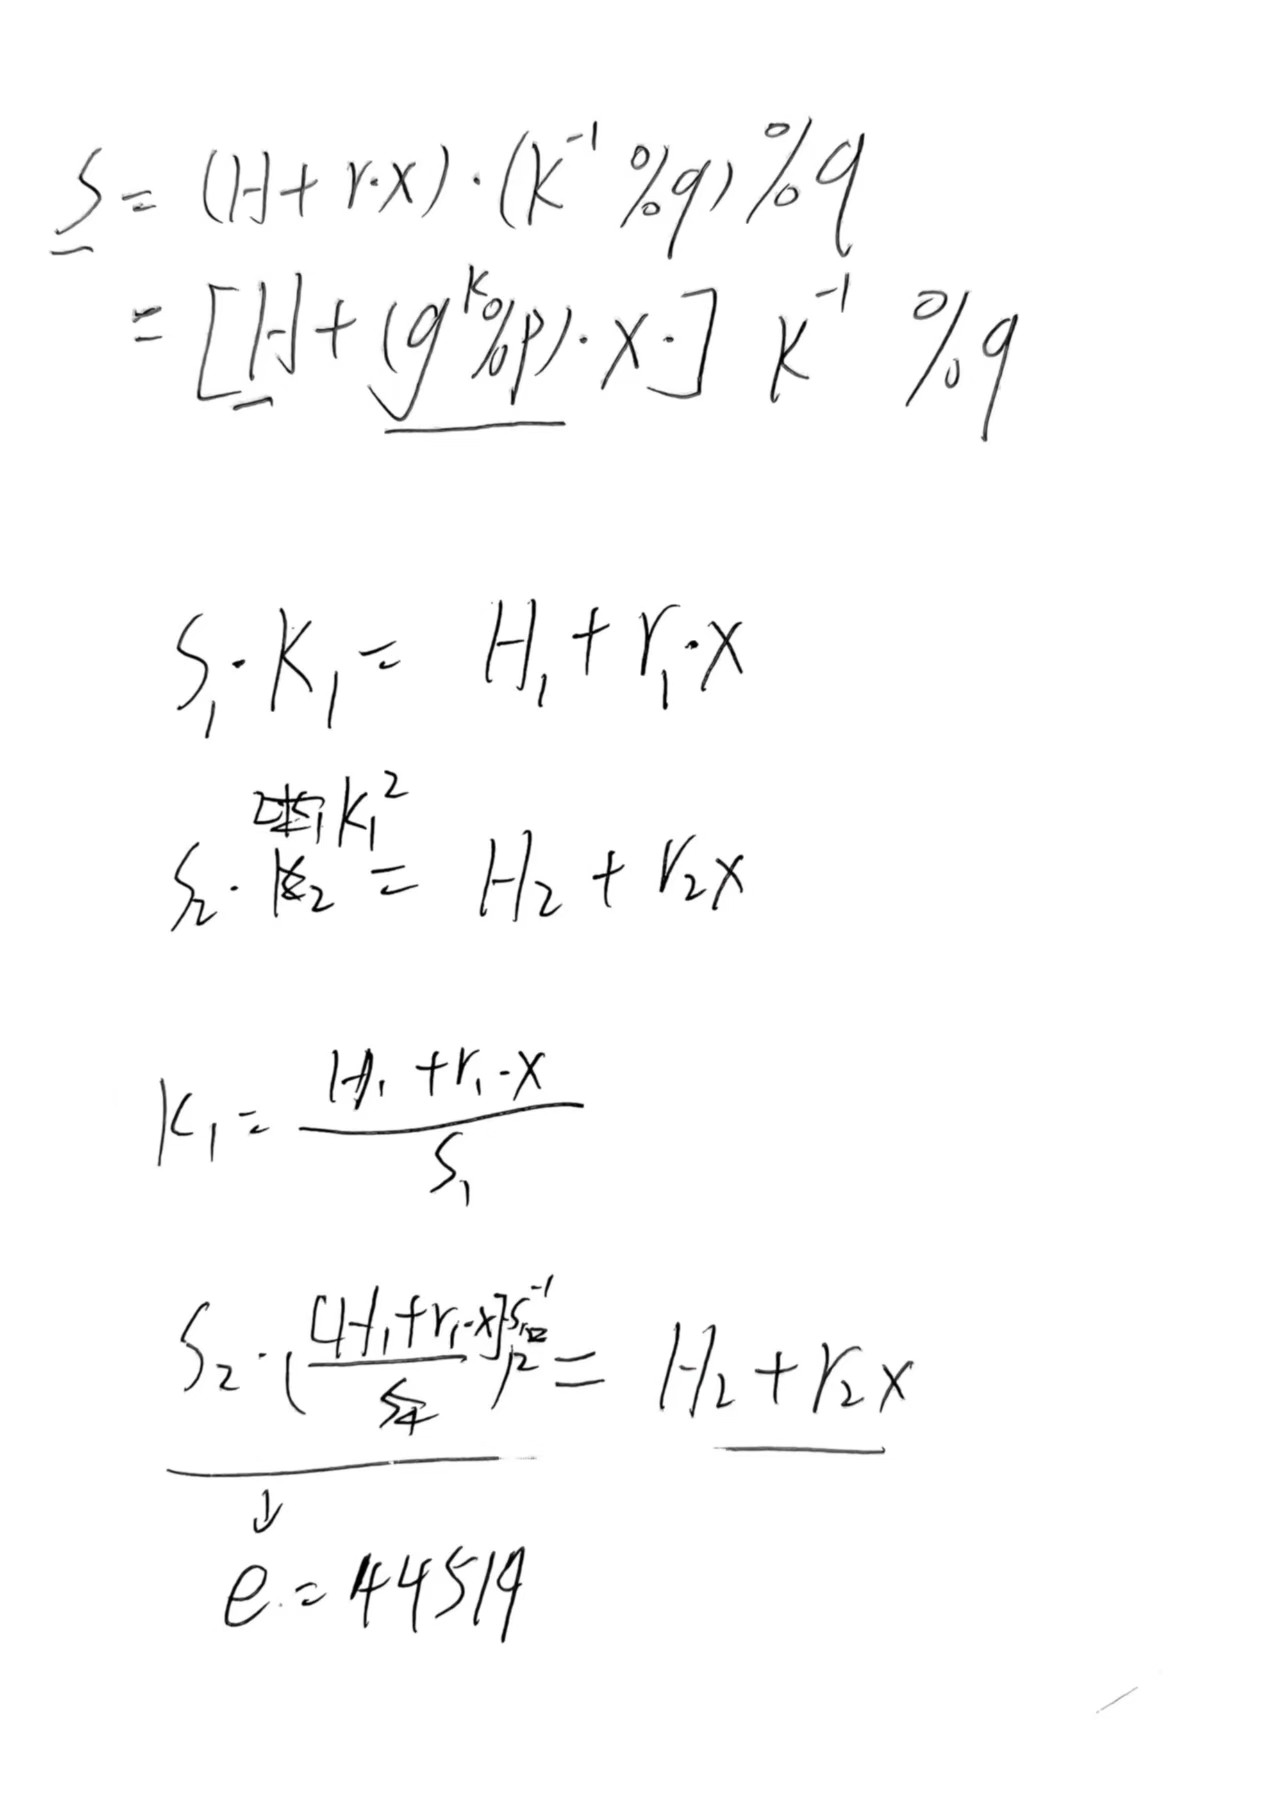 S = (H + r·x)·(K⁻¹ %q) %q
= [H + (g^K %p)·x·] K⁻¹ %q
S₁·K₁ = H₁ + r₁·x
K₁²
S₂·K₂ = H₂ + r₂x
K₁ = (H₁ + r₁·x) / S₁
S₂·([H₁ + r₁·x]·S₁⁻¹)² = H₂ + r₂x
↓
e = 44519